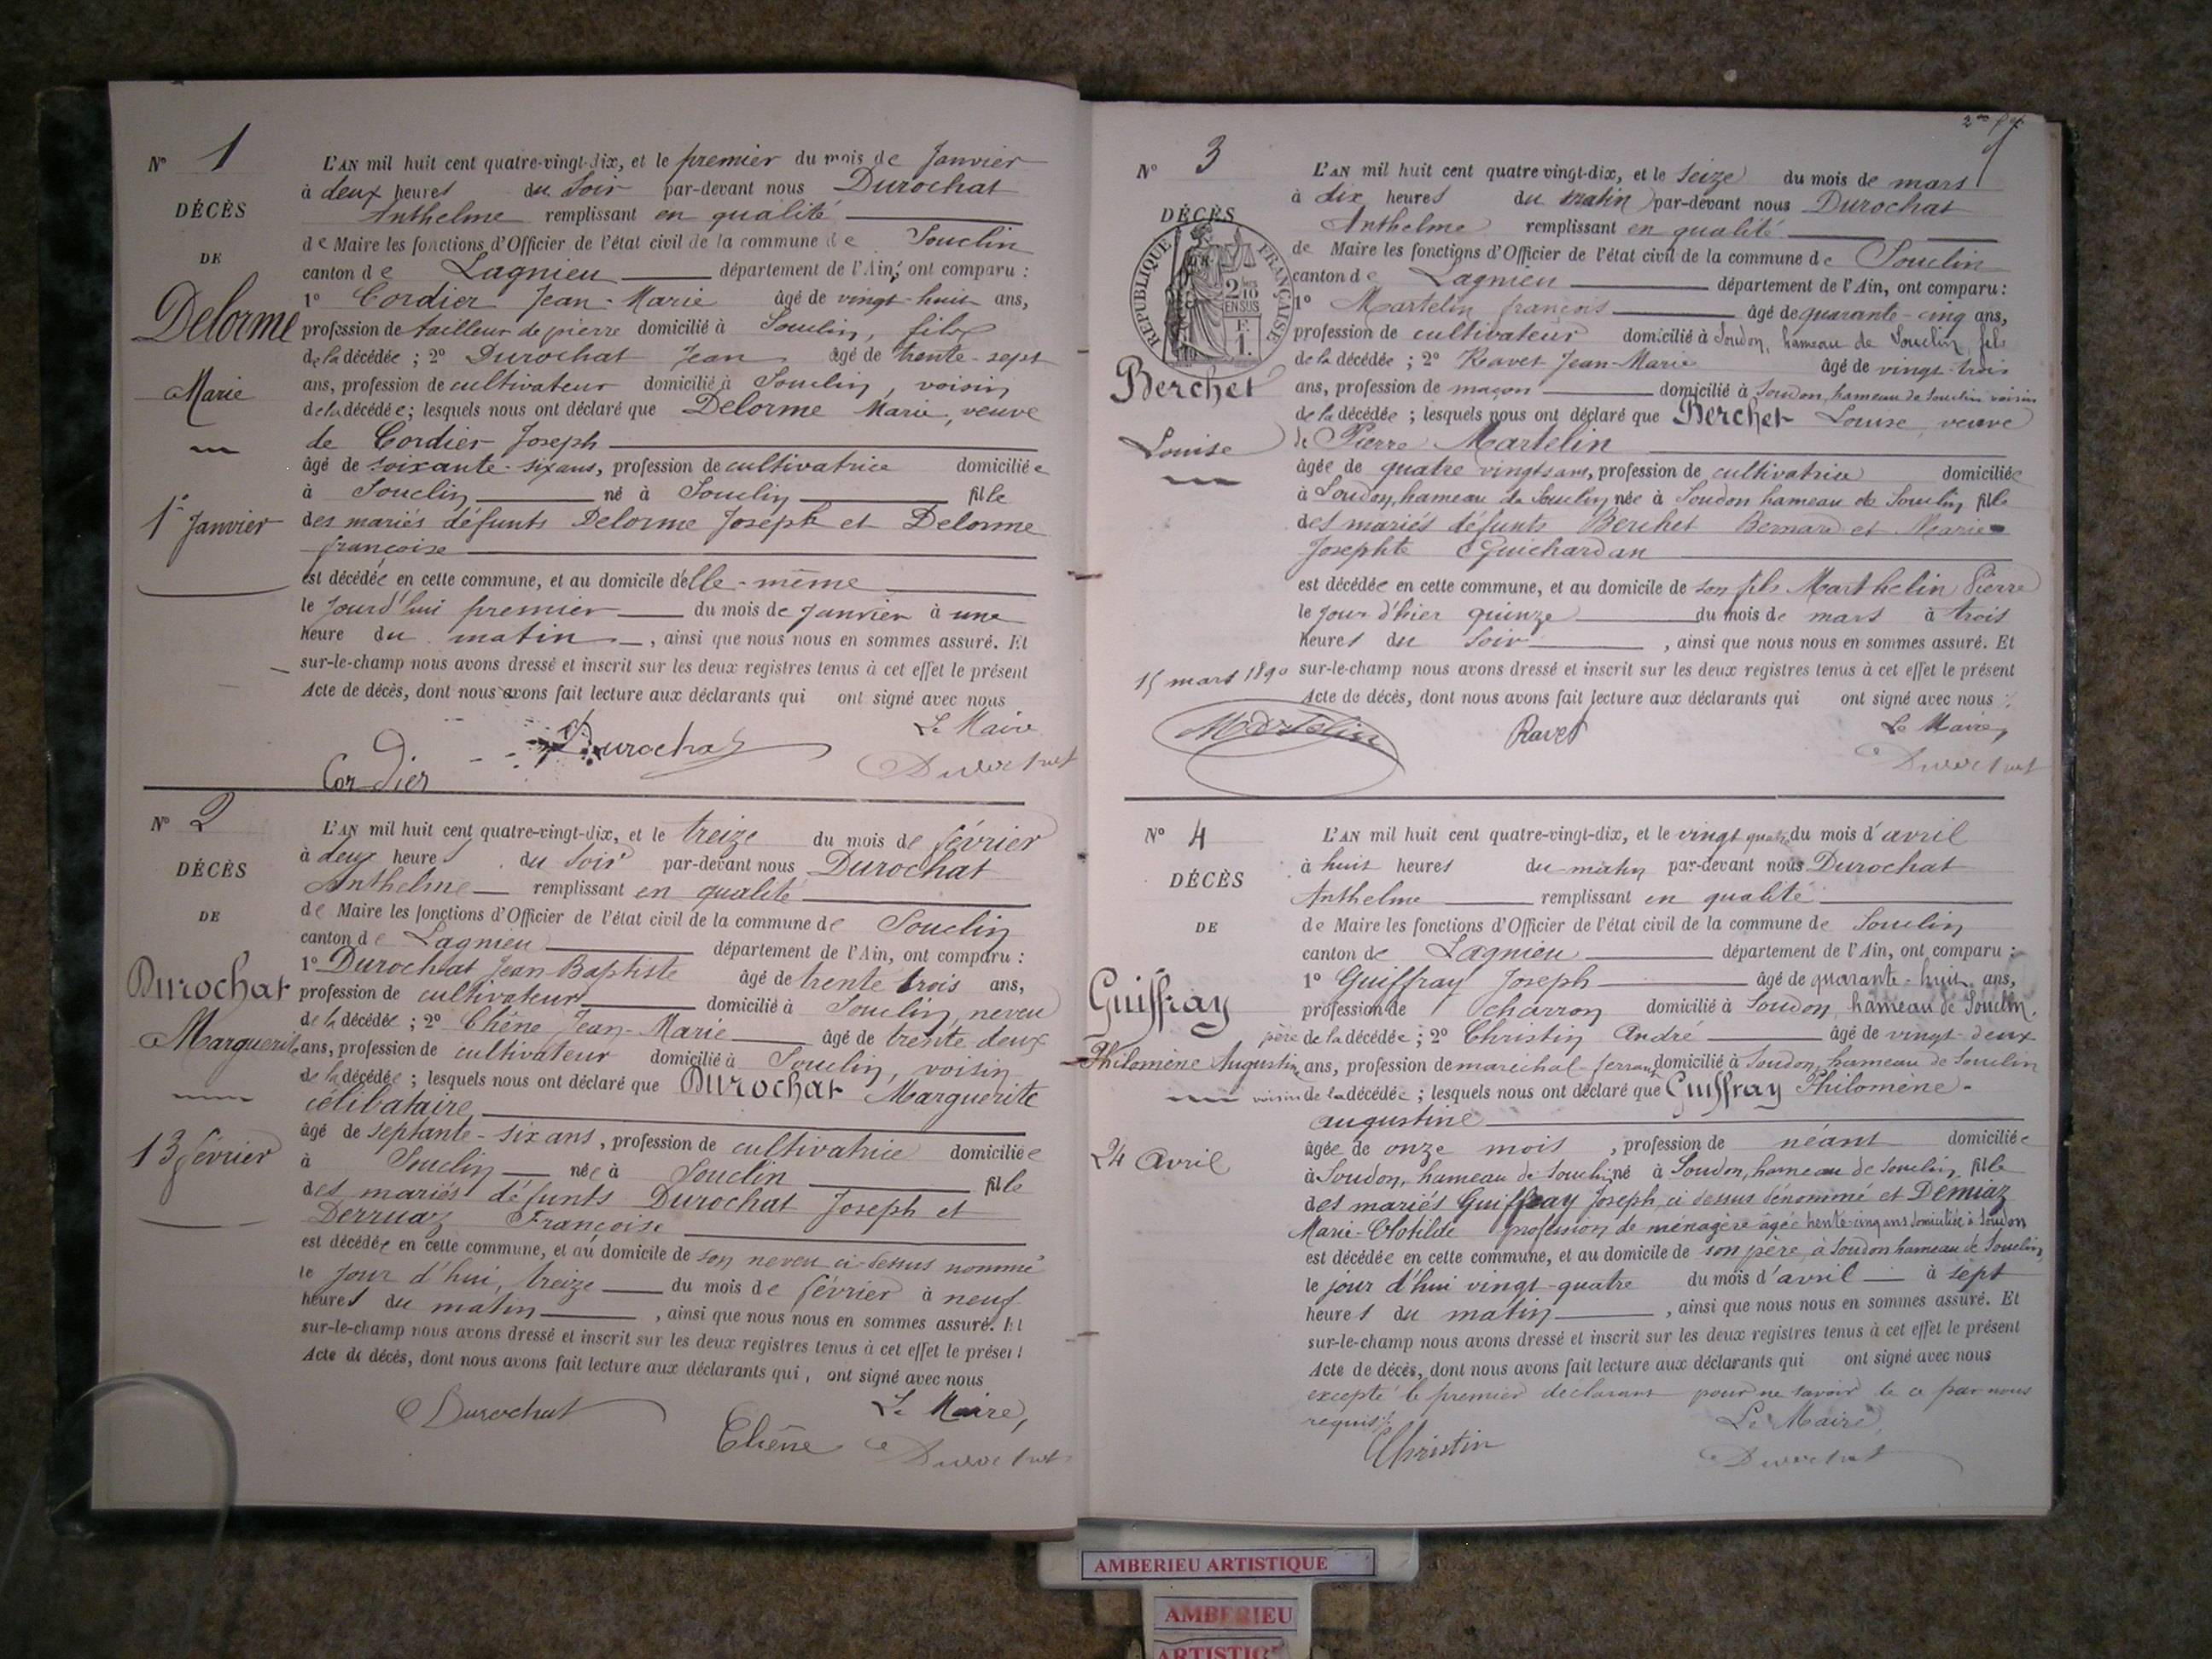 N° 1
DÉCÈS
DE
Delorme
Marie
1er Janvier
L'AN mil huit cent quatre-vingt-dix, et le premier du mois de Janvier
à deux heures du soir par-devant nous Durochat
Anthelme remplissant en qualité
de Maire les fonctions d'Officier de l'état civil de la commune de Souclin
canton de Lagnieu département de l'Ain, ont comparu :
1° Cordier Jean-Marie âgé de vingt-huit ans,
profession de tailleur de pierre domicilié à Souclin, fils
de la décédée ; 2° Durochat Jean âgé de trente-sept
ans, profession de cultivateur domicilié à Souclin, voisin
de la décédée ; lesquels nous ont déclaré que Delorme Marie, veuve
de Cordier Joseph
âgé de soixante-six ans, profession de cultivatrice domiciliée
à Souclin né à Souclin fille
des mariés défunts Delorme Joseph et Delorme
françoise
est décédée en cette commune, et au domicile d'elle-même
le jourd'hui premier du mois de janvier à une
heure du matin , ainsi que nous nous en sommes assuré. Et
sur-le-champ nous avons dressé et inscrit sur les deux registres tenus à cet effet le présent
Acte de décès, dont nous avons fait lecture aux déclarants qui ont signé avec nous
Le Maire
Cordier Durochat Durochat
N° 2
DÉCÈS
DE
Durochat
Marguerite
13 février
L'AN mil huit cent quatre-vingt-dix, et le treize du mois de février
à deux heures du soir par-devant nous Durochat
Anthelme remplissant en qualité
de Maire les fonctions d'Officier de l'état civil de la commune de Souclin
canton de Lagnieu département de l'Ain, ont comparu :
1° Durochat Jean-Baptiste âgé de trente trois ans,
profession de cultivateur domicilié à Souclin, neveu
de la décédée ; 2° Chêne Jean-Marie âgé de trente deux
ans, profession de cultivateur domicilié à Souclin, voisin
de la décédée ; lesquels nous ont déclaré que Durochat Marguerite
célibataire
âgé de septante-six ans, profession de cultivatrice domiciliée
à Souclin née à Souclin fille
des mariés défunts Durochat Joseph et
Derruaz Françoise
est décédée en cette commune, et au domicile de son neveu ci-dessus nommé
le jour d'hui, treize du mois de février à neuf
heures du matin , ainsi que nous nous en sommes assuré. Et
sur-le-champ nous avons dressé et inscrit sur les deux registres tenus à cet effet le présent
Acte de décès, dont nous avons fait lecture aux déclarants qui, ont signé avec nous
Le Maire,
Durochat Chêne Durochat
N° 3
DÉCÈS
RÉPUBLIQUE FRANÇAISE
2 DES 10 EN SUS
F. 1.
Berchet
Louise
15 mars 1890
L'AN mil huit cent quatre vingt-dix, et le seize du mois de mars
à dix heures du matin par-devant nous Durochat
Anthelme remplissant en qualité
de Maire les fonctions d'Officier de l'état civil de la commune de Souclin
canton de Lagnieu département de l'Ain, ont comparu :
1° Martelin françois âgé de quarante-cinq ans,
profession de cultivateur domicilié à Soudon, hameau de Souclin, fils
de la décédée ; 2° Ravet Jean-Marie âgé de vingt-trois
ans, profession de maçon domicilié à Soudon, hameau de Souclin voisin
de la décédée ; lesquels nous ont déclaré que Berchet Louise veuve
de Pierre Martelin
âgée de quatre vingts ans, profession de cultivatrice domiciliée
à Soudon, hameau de Souclin née à Soudon hameau de Souclin fille
des mariés défunts Berchet Bernard et Marie
Josephte Guichardan
est décédée en cette commune, et au domicile de son fils Marthelin Pierre
le jour d'hier quinze du mois de mars à trois
heures du soir , ainsi que nous nous en sommes assuré. Et
sur-le-champ nous avons dressé et inscrit sur les deux registres tenus à cet effet le présent
Acte de décès, dont nous avons fait lecture aux déclarants qui ont signé avec nous
Le Maire,
Martelin Ravet Durochat
N° 4
DÉCÈS
DE
Guiffray
Philomène Augustine
24 avril
L'AN mil huit cent quatre-vingt-dix, et le vingt quatre du mois d'avril
à huit heures du matin par-devant nous Durochat
Anthelme remplissant en qualité
de Maire les fonctions d'Officier de l'état civil de la commune de Souclin
canton de Lagnieu département de l'Ain, ont comparu :
1° Guiffray Joseph âgé de quarante-huit ans,
profession de charron domicilié à Soudon, hameau de Souclin,
père de la décédée ; 2° Christin André âgé de vingt-deux
ans, profession de maréchal ferrant domicilié à Soudon, hameau de Souclin
voisin de la décédée ; lesquels nous ont déclaré que Guiffray Philomène-
augustine
âgée de onze mois , profession de néant domiciliée
à Soudon, hameau de Souclin né à Soudon, hameau de Souclin fille
des mariés Guiffray Joseph, ci dessus dénommé et Démiaz
Marie-Clotilde profession de ménagère âgée trente-cinq ans domiciliée à Soudon
est décédée en cette commune, et au domicile de son père, à Soudon hameau de Souclin,
le jour d'hui vingt-quatre du mois d'avril à sept
heures du matin , ainsi que nous nous en sommes assuré. Et
sur-le-champ nous avons dressé et inscrit sur les deux registres tenus à cet effet le présent
Acte de décès, dont nous avons fait lecture aux déclarants qui ont signé avec nous
excepté le premier déclarant pour ne savoir de ce par nous
requis
Le Maire,
Christin Durochat
AMBERIEU ARTISTIQUE
AMBERIEU
ARTISTIQ